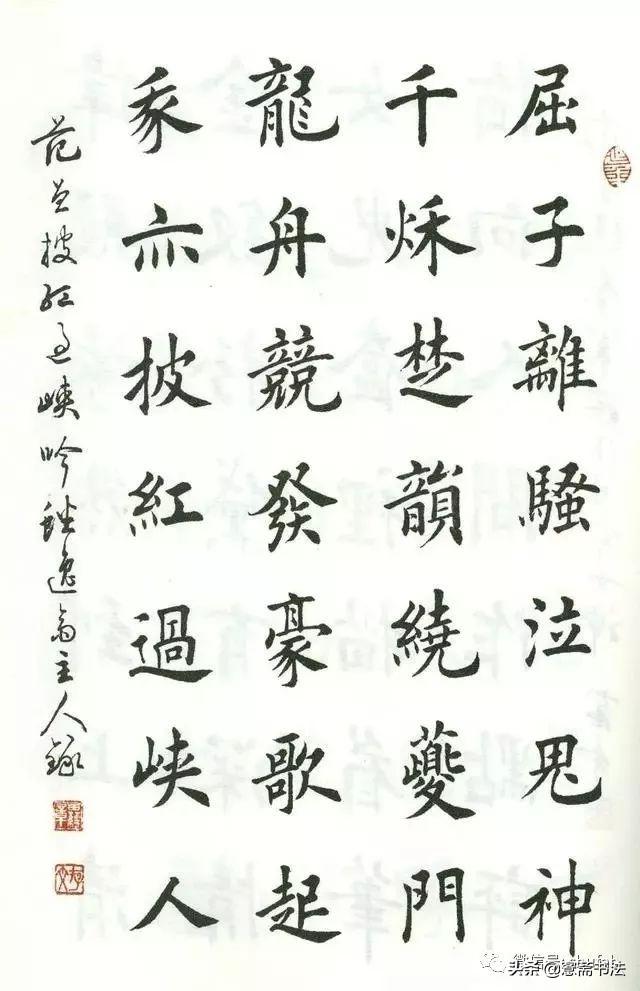 屈子離騷泣鬼神
千秌楚韻繞夔門
龍舟競發豪歌起
我亦披紅過峽人
范披紅過峽吟逸齋主人錄
头条@斋书法